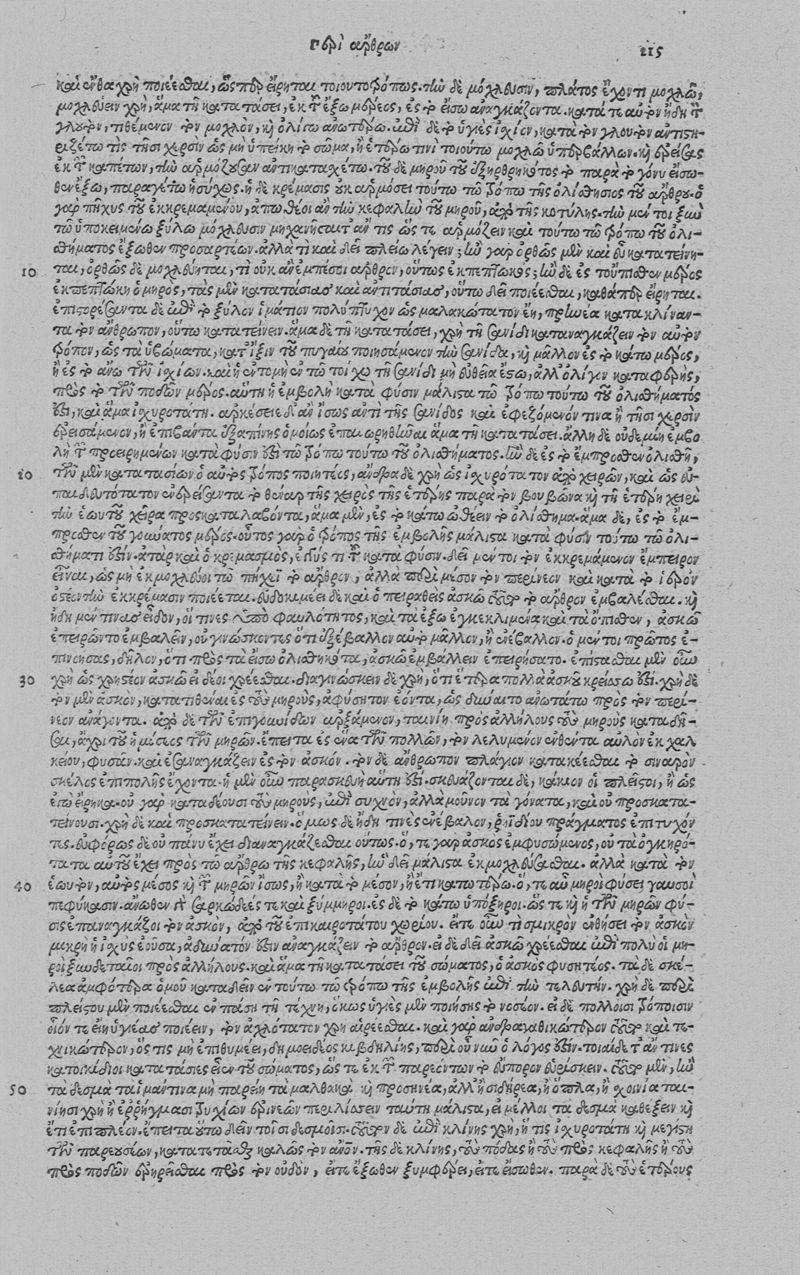 Περὶ ἄρθρων
215
καὶ ἔνθα χρὴ ποιέεσθαι, ὥσπερ εἴρηται τοιουτοτρόπως. τὴν δὲ μόχλευσιν, πλάτος ἔχοντι μοχλῷ,
μοχλεύειν χρὴ, ἅμα τῇ κατατάσει, ἐκ τοῦ ἔξω μέρεος, ἐς τὸ εἴσω ἀναγκάζοντα. κατά τε αὐτὸν ἤδη τὸν
γλουτὸν, τιθέμενον τὸν μοχλὸν, καὶ ὀλίγῳ ἀνωτέρω. ἐπὶ δὲ τὸ ὑγιὲς ἰσχίον, κατὰ τὸν γλουτὸν ἀντιστη-
ριζέτω τὶς τῇσι χερσὶν ὡς μὴ ὑπείκῃ τὸ σῶμα, ἢ ἑτέρῳ τινὶ τοιούτῳ μοχλῷ ὑπερβάλλων. καὶ ἐρείσας
ἐκ τῶν καπέτων, τὴν ἁρμόζουσαν ἀντικατεχέτω. τοῦ δὲ μηροῦ τοῦ ἐξηρθρηκότος τὸ παρὰ τὸ γόνυ εἴσω-
θεν ἔξω, παραγέτω ἡσύχως. ἡ δὲ κρέμασις οὐκ ἁρμόσει τούτῳ τῷ τρόπῳ τῆς ὀλισθήσιος τοῦ ἄρθρου. ὁ
γὰρ πῆχυς τοῦ ἐκκρεμαμένου, ἀπωθέοι ἂν τὴν κεφαλὴν τοῦ μηροῦ, ἀπὸ τῆς κοτύλης. τὴν μέν τοι ξὺν
τῷ ὑποκειμένῳ ξύλῳ μόχλευσιν μηχανήσαιτ᾽ ἄν τις ὥς τε ἁρμόζειν καὶ τούτῳ τῷ τρόπῳ τοῦ ὀλι-
σθήματος ἔξωθεν προσαρτέων. ἀλλὰ τί καὶ δεῖ πλείω λέγειν; ἢν γὰρ ὀρθῶς μὲν καὶ εὖ κατατείνη-
10 ται, ὀρθῶς δὲ μοχλεύηται, τί οὐκ ἂν ἐμπέσοι ἄρθρον, οὕτως ἐκπεπτωκός; ἢν δὲ ἐς τοὔπισθεν μέρος
ἐκπεπτώκῃ ὁ μηρὸς, τὰς μὲν κατατάσιας καὶ ἀντιτάσιας, οὕτω δεῖ ποιέεσθαι, καθάπερ εἴρηται.
ἐπιστορέσαντα δὲ ἐπὶ τὸ ξύλον ἱμάτιον πολύπτυχον ὡς μαλακώτατον ἔῃ, πρηνέα κατακλίναν-
τα τὸν ἄνθρωπον, οὕτω κατατείνειν. ἅμα δὲ τῇ κατατάσει, χρὴ τῇ σανίδι καταναγκάζειν τὸν αὐτὸν
τρόπον, ὡς τὰ ὑβώματα, κατ᾽ ἴξιν τοῦ πυγαίου ποιησάμενον τὴν σανίδα, καὶ μᾶλλον ἐς τὸ κάτω μέρος,
ἢ ἐς τὸ ἄνω τῶν ἰσχίων. καὶ ἡ ἐντομὴ ἐν τῷ τοίχῳ τῇ σανίδι μὴ εὐθεῖα ἔστω, ἀλλ᾽ ὀλίγον καταφερὴς,
πρὸς τὸ τῶν ποδῶν μέρος. αὕτη ἡ ἐμβολὴ κατὰ φύσιν μάλιστα τῷ τρόπῳ τούτῳ τοῦ ὀλισθήματός
ἐστι, καὶ ἅμα ἰσχυροτάτη. ἀρκέσειε δ᾽ ἂν ἴσως ἀντὶ τῆς σανίδος καὶ ἐφεζόμενόν τινα ἢ τῇσι χερσὶν
ἐρεισάμενον, ἢ ἐπιβάντα ἐξαπίνης ὁμοίως ἐπαιωρηθῆναι ἅμα τῇ κατατάσει. ἄλλη δὲ οὐδεμίη ἐμβο-
λὴ τῶν προειρημένων κατὰ φύσιν ἐστὶ τῷ τρόπῳ τούτῳ τοῦ ὀλισθήματος. ἢν δὲ ἐς τὸ ἔμπροσθεν ὀλισθῇ,
20 τῶν μὲν κατατασίων ὁ αὐτὸς τρόπος ποιητέος, ἄνδρα δὲ χρὴ ὡς ἰσχυρότατον ἀπὸ χειρῶν, καὶ ὡς εὐ-
παιδευτότατον ἐνερείσαντα τὸ θέναρ τῆς χειρὸς τῆς ἑτέρης παρὰ τὸν βουβῶνα καὶ τῇ ἑτέρῃ χειρὶ
τὴν ἑωυτοῦ χεῖρα προσκαταλαβόντα, ἅμα μὲν, ἐς τὸ κάτω ὠθέειν τὸ ὀλίσθημα. ἅμα δὲ, ἐς τὸ ἔμ-
προσθεν τοῦ γούνατος μέρος. οὗτος γὰρ ὁ τρόπος τῆς ἐμβολῆς μάλιστα κατὰ φύσιν τούτῳ τῷ ὀλι-
σθήματί ἐστιν. ἀτὰρ καὶ ὁ κρεμασμὸς, ἐγγύς τι τοῦ κατὰ φύσιν. δεῖ μέν τοι τὸν ἐκκρεμάμενον ἔμπειρον
εἶναι, ὡς μὴ ἐκμοχλεύῃ τῷ πήχει τὸ ἄρθρον, ἀλλὰ περὶ μέσον τὸν περίνεον καὶ κατὰ τὸ ἱερὸν
ὀστέον τὴν ἐκκρέμασιν ποιέεται. εὐδοκιμέει δὲ καὶ ὁ πειραθεὶς ἀσκῷ τοῦτο τὸ ἄρθρον ἐμβαλέεσθαι. καὶ
ἤδη μέν τινας εἶδον, οἵ τινες ὑπὸ φαυλότητος, καὶ τὰ ἔξω ἐγκεκλιμένα καὶ τὰ ὄπισθεν, ἀσκῷ
ἐπειρῶντο ἐμβαλεῖν, οὐ γινώσκοντες ὅτι ἐξέβαλλον αὐτὸ μᾶλλον, ἢ ἐνέβαλλον. ὁ μέντοι πρῶτος ἐ-
πινοήσας, δῆλον, ὅτι πρὸς τὰ εἴσω ὀλισθηκότα, ἀσκῷ ἐμβάλλειν ἐπειρήσατο. ἐπίστασθαι μὲν οὖν
30 χρὴ ὡς χρηστέον ἀσκῷ εἰ δέοι χρέεσθαι. διαγινώσκειν δὲ χρὴ, ὅτι ἕτερα πολλὰ ἀσκοῦ κρείσσω ἐστί. χρὴ δὲ
τὸν μὲν ἀσκὸν, κατατιθέναι ἐς τοὺς μηροὺς, ἀφύσητον ἐόντα, ὡς δύναιτο ἀνωτάτω πρὸς τὸν περί-
νεον ἀνάγοντα. ἀπὸ δὲ τῶν ἐπιγουνίδων ἀρξάμενον, ταινίῃ πρὸς ἀλλήλους τοὺς μηροὺς καταδῆ-
σαι, ἄχρι τοῦ ἡμίσεος τῶν μηρῶν. ἔπειτα ἐς ἕνα τῶν πολλῶν, τὸν λελυμένον ἐνθέντα αὐλὸν ἐκ χαλ-
κείου, φυσᾶν. καὶ ἐσαναγκάζειν ἐς τὸν ἀσκόν. τὸν δὲ ἄνθρωπον πλάγιον κατακέεσθαι τὸ σιναρὸν
σκέλος ἐπιπολῆς ἔχοντα. ἡ μὲν οὖν παρασκευὴ αὕτη ἐστί. σκευάζονται δὲ, κάκιον οἱ πλεῖστοι, ἢ ὡς
ἐγὼ εἴρηκα. οὐ γὰρ καταδέουσι τοὺς μηροὺς, ἐπὶ συχνὸν, ἀλλὰ μοῦνον τὰ γόνατα, καὶ οὐ προσκατα-
τείνουσι. χρὴ δὲ καὶ προσκατατείνειν. ὅμως δὲ ἤδη τινὲς ἐνέβαλον, ῥηϊδίου πρήγματος ἐπιτυχόν-
τες. εὐφόρως δὲ οὐ πάνυ ἔχει διαναγκάζεσθαι οὕτως. ὅ, τε γὰρ ἀσκὸς ἐμφυσώμενος, οὐ τὰ ὀγκηρό-
τατα αὐτοῦ ἔχει πρὸς τῷ ἄρθρῳ τῆς κεφαλῆς, ἣν δεῖ μάλιστα ἐκμοχλεύεσθαι. ἀλλὰ κατὰ τὸν
40 ἑωυτὸν, αὐτὸς μέσος καὶ τῶν μηρῶν ἴσως, ἢ κατὰ τὸ μέσον, ἢ ἔτι κατωτέρω. ὅ, τε αὖ μηροὶ φύσει γαυσοὶ
πεφύκασιν. ἄνωθεν γὰρ σαρκώδεές τε καὶ ξύμμηροι. ἐς δὲ τὸ κάτω ὑπόξηροι. ὥς τε καὶ ἡ τῶν μηρῶν φύ-
σις ἐπαναγκάζοι τὸν ἀσκὸν, ἀπὸ τοῦ ἐπικαιροτάτου χωρίου. εἴτε οὖν τὶ σμικρὸν ἐνθήσει τὸν ἀσκὸν
μικρὴ ἡ ἰσχὺς ἐοῦσα, ἀδύνατόν ἐστιν ἀναγκάζειν τὸ ἄρθρον. εἰ δὲ δεῖ ἀσκῷ χρέεσθαι ἐπὶ πολὺ οἱ μη-
ροὶ ξυνδετέοι πρὸς ἀλλήλους. καὶ ἅμα τῇ κατατάσει τοῦ σώματος, ὁ ἀσκὸς φυσητέος. τὰ δὲ σκέ-
λεα ἀμφότερα ὁμοῦ καταδεῖν ἐν τούτῳ τῷ τρόπῳ τῆς ἐμβολῆς ἐπὶ τὴν τελευτήν. χρὴ δὲ περὶ
πλείστου μὲν ποιέεσθαι ἐν πάσῃ τῇ τέχνῃ, ὅκως ὑγιὲς μὲν ποιήσῃς τὸ νοσέον. εἰ δὲ πολλοῖσι τρόποισιν
οἷόν τε εἴη ὑγιέας ποιέειν, τὸν ἀοχλότατον χρὴ αἱρέεσθαι. καὶ γὰρ ἀνδραγαθικώτερον τοῦτο καὶ τε-
χνικώτερον, ὅς τις μὴ ἐπιθυμέει, δημοειδέος κιβδηλίης, περὶ οὗ νῦν ὁ λόγος ἐστίν. τοιαίδε τ᾽ ἄν τινες
κατοικίδιοι κατατάσιες εἶεν τοῦ σώματος, ὥς τε ἐκ τῶν παρεόντων τὸ εὔπορον εὑρίσκειν. τοῦτο μὲν, ἢν
50 τὰ δεσμὰ τὰ ἱμάντινα μὴ παρείη τὰ μαλθακὰ καὶ προσηνέα, ἀλλ᾽ ἢ σιδήρεα, ἢ ὅπλα, ἢ σχοινία ται-
νίῃσι χρὴ ἢ ἐρρήγμασι τρυχίων ἐρινέων περιελίσσειν ταύτῃ μάλιστα, ᾗ μέλλοι τὰ δεσμὰ καθέξειν καὶ
ἔτι ἐπὶ πλέον. ἔπειτα οὕτω δεῖν τοῖσι δεσμοῖσι. τοῦτο δὲ ἐπὶ κλίνης χρὴ, ἥ τις ἰσχυροτάτη καὶ μεγίστη
τῶν παρεουσέων, κατατετάσθαι καλῶς τὸν ἄνθρωπον. τῆς δὲ κλίνης, τοὺς πόδας ἢ τοὺς πρὸς κεφαλῆς ἢ τοὺς
πρὸς ποδῶν ἐρηρεῖσθαι πρὸς τὸν οὐδὸν, εἴτε ἔξωθεν ξυμφέρει, εἴτε εἴσωθεν. παρὰ δὲ τοὺς ἑτέρους